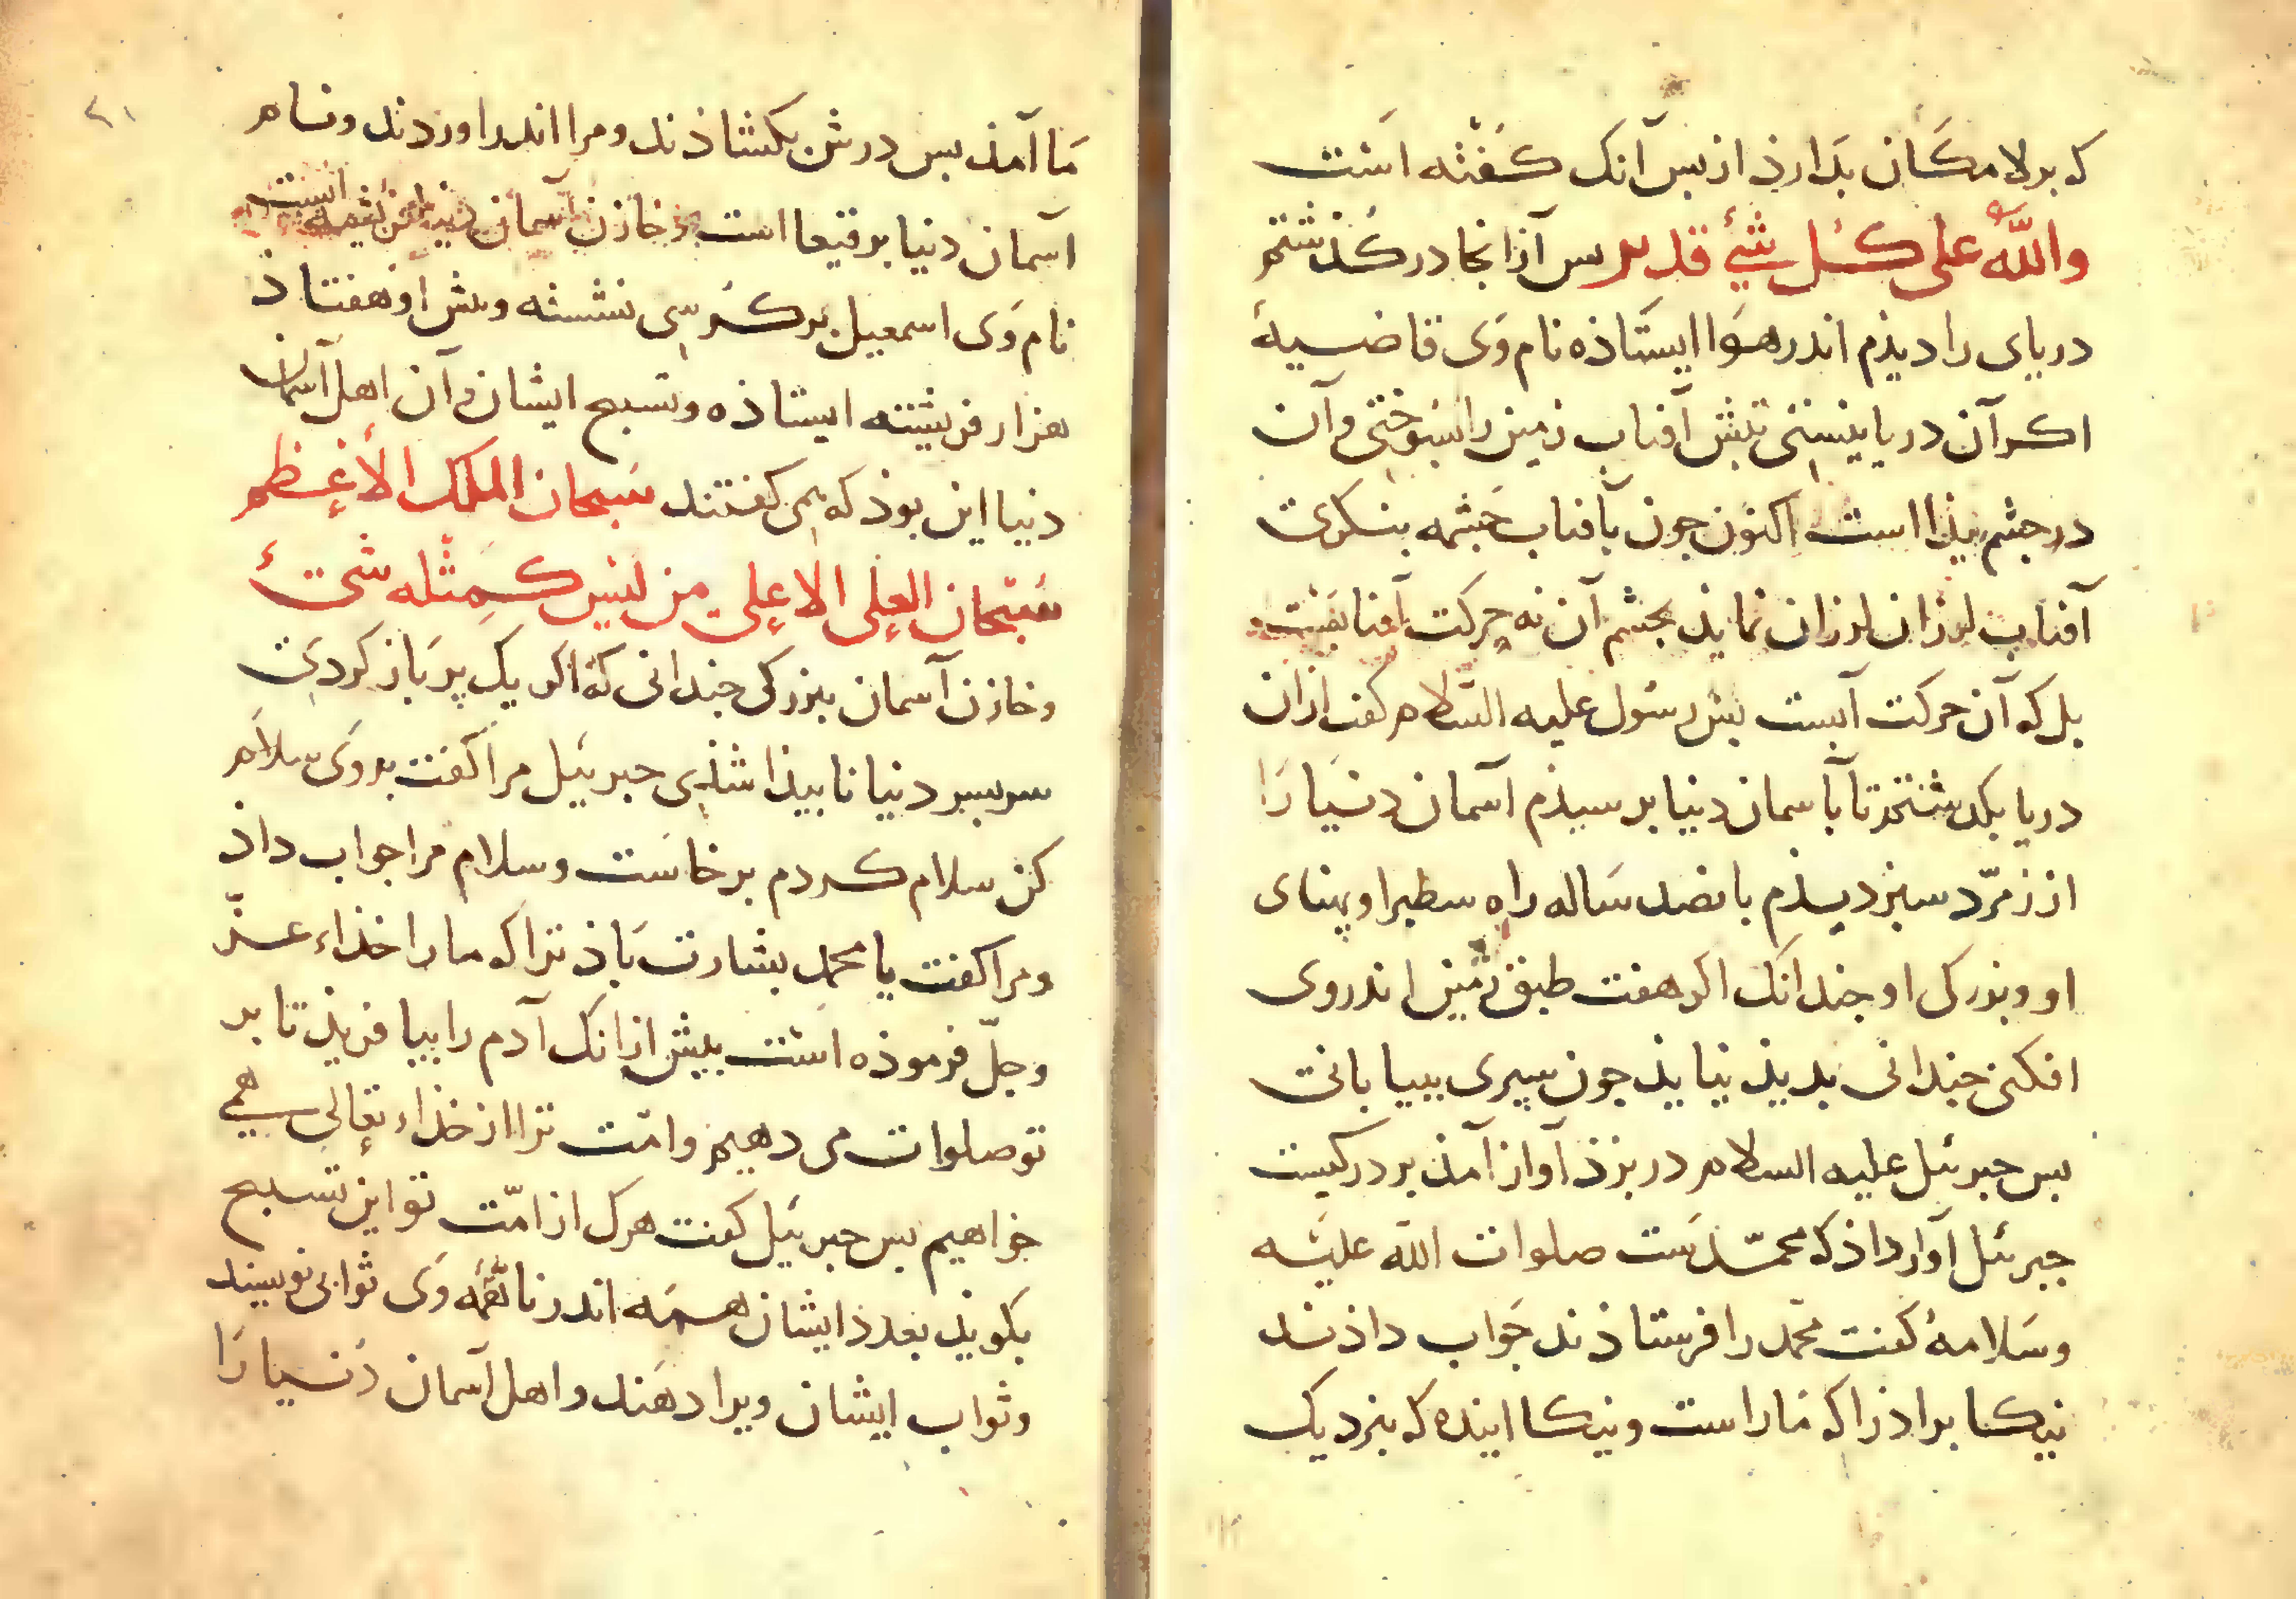 که بر لا مکان بدارذ از بس آنک کفته است
والله علی کل شیء قدیر بس آز انجا در کذشتم
دریای را دیذم اندر هوا ایستاذه نام وی قاضیه
اکر آن دریا نیستی تبش آفتاب زمین را بسوختی و آن
در جشم بیذا است اکنون جون بآفتاب جشمه بنکری
آفتاب لرزان لرزان نمایذ بجشم آن نه حرکت آفتابست
بل که آن حرکت آبست بس رسول علیه السلام کفت ازان
دریا بکدشتم تا بآسمان دنیا برسیذم آسمان دنیا را
از زمرّد سبز دیذم بانصد ساله راه سطبرا و پهنای
او و بزرکی او جندانک اکر هفت طبق زمین اندر وی
افکنی جندانی بدیذ نیایذ جون سپری ببیابانی
بس جبرئیل علیه السلام در بزذ آواز آمذ بر در کیست
جبرئیل آواز داذ که محمّدست صلوات الله علیه
و سلامه کفت محمد را فرستاذند جواب داذند
نیکا براذرا که ما راست و نیکا اینده که بنزدیک
۲۱
ما آمذ بس درش بکشاذند و مرا اندر اوردند و نام
آسمان دنیا برقیعا است و خازن آسمان
نام وی اسمعیل بر کرسی نشسته و بیش او هفتاذ
هزار فریشته ایستاذه و تسبیح ایشان و آن اهل آسمان
دنیا این بوذ که می کفتند سبحان الملک الأعظم
سبحان العلی الاعلی من لیس کمثله شیء
و خازن آسمان ببزرکی جندانی که اکر یک پر باز کردی
سربسر دنیا نابیذا شذی جبرئیل مرا کفت بر وی سلام
کن سلام کردم برخاست و سلام مرا جواب داذ
و مرا کفت یا محمد بشارت باذ ترا که ما را خذاء عزّ
و جلّ فرموذه است بیش ازانک آدم را بیافریذ تا بر
تو صلوات می دهیم و امّت ترا از خذاء تعالی همی
خواهیم بس جبرئیل کفت هرک از امّت تو این تسبیح
بکویذ بعدد ایشان همه اندر نامهٔ وی ثوابی نویسند
و ثواب ایشان ویرا دهند و اهل آسمان دنیا را